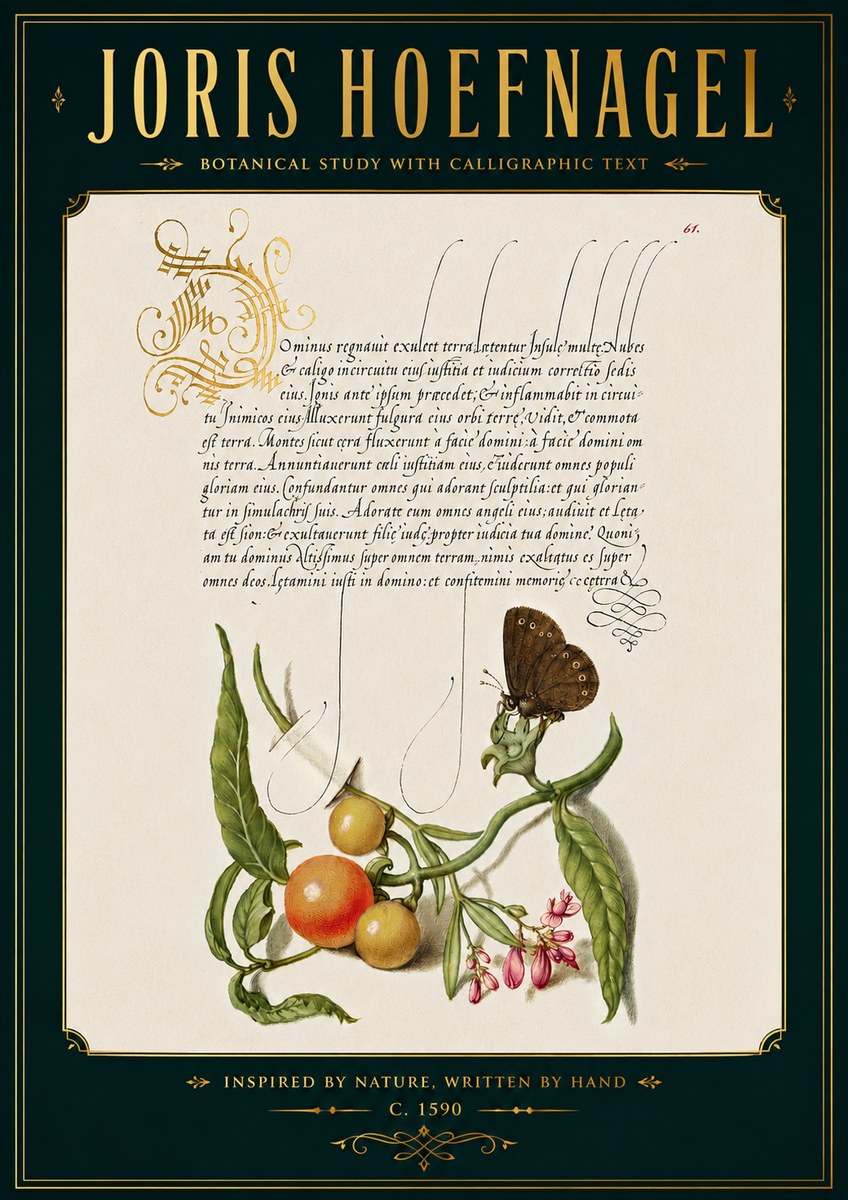 JORIS HOEFNAGEL
BOTANICAL STUDY WITH CALLIGRAPHIC TEXT
61.
DOminus regnauit exulcet terra lætentur Insulę multę. Nubes
& caligo in circuitu eius iustitia et iudicium correctio sedis
eius. Ignis ante ipsum præcedet, & inflammabit in circui-
tu Inimicos eius. Illuxerunt fulgura eius orbi terrę, Vidit, & commota
est terra. Montes sicut cęra fluxerunt à facie domini: à facie domini om
nis terra. Annuntiauerunt cæli iustitiam eius, & uiderunt omnes populi
gloriam eius. Confundantur omnes qui adorant sculptilia: et qui glorian-
tur in simulachris suis. Adorate eum omnes angeli eius; audiuit et lęta
ta est sion: & exultauerunt filię iudę, propter iudicia tua domine. Quoni,
am tu dominus Altissimus super omnem terram, nimis exaltatus es super
omnes deos. Lętamini iusti in domino: et confitemini memorię
INSPIRED BY NATURE, WRITTEN BY HAND
C. 1590